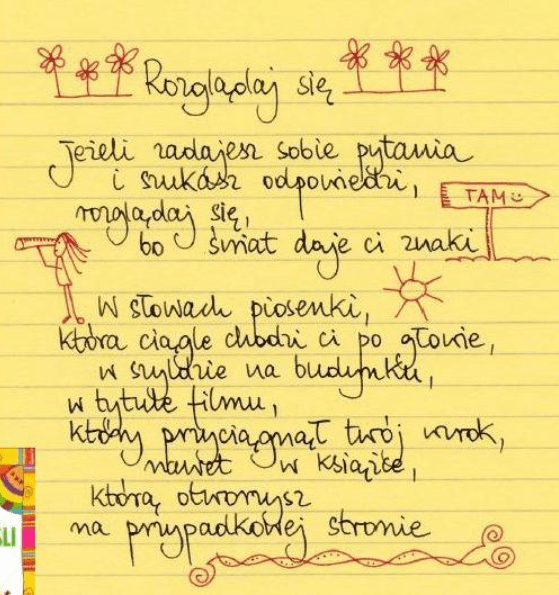 Rozglądaj się
Jeżeli zadajesz sobie pytania
i szukasz odpowiedzi,
rozglądaj się,
bo świat daje ci znaki
TAM
W słowach piosenki,
która ciągle chodzi ci po głowie,
w szyldzie na budynku,
w tytule filmu,
który przyciągnął twój wzrok,
nawet w książce,
którą otworzysz
na przypadkowej stronie